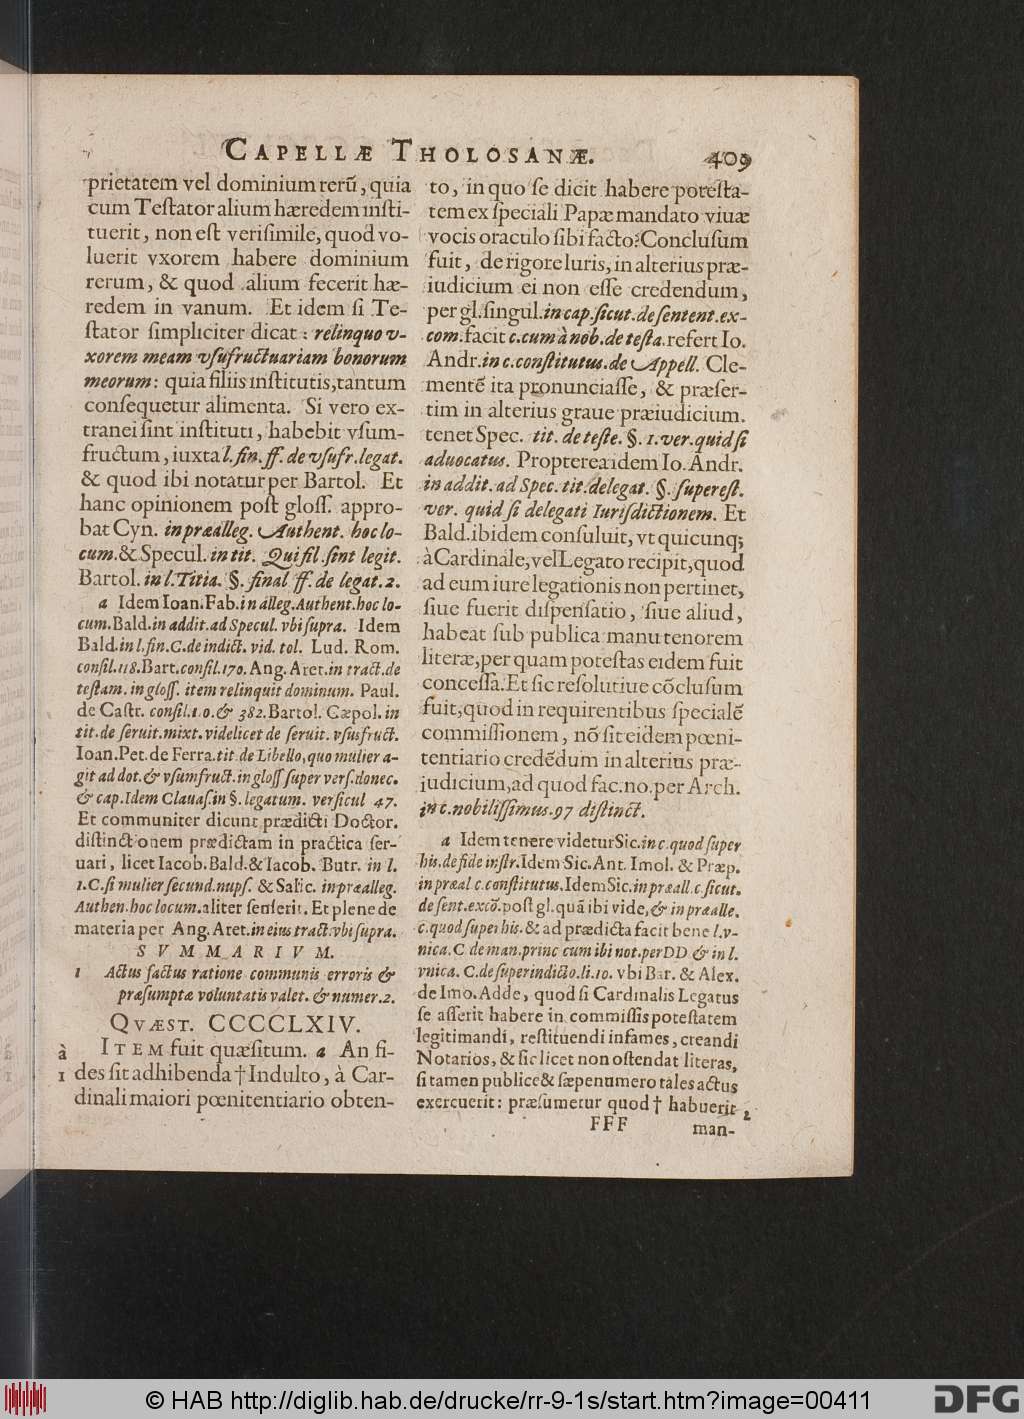 CAPELLÆ THOLOSANÆ. 409
prietatem vel dominium rerũ, quia
cum Teſtator alium hæredem inſti-
tuerit, non eſt veriſimile, quod vo-
luerit vxorem habere dominium
rerum, & quod alium fecerit hæ-
redem in vanum. Et idem ſi Te-
ſtator ſimpliciter dicat: relinquo v-
xorem meam vſufructuariam bonorum
meorum: quia filiis inſtitutis, tantum
conſequetur alimenta. Si vero ex-
tranei ſint inſtituti, habebit vſum-
fructum, iuxta l. fin. ff. de vſufr. legat.
& quod ibi notatur per Bartol. Et
hanc opinionem poſt gloſſ. appro-
bat Cyn. in præalleg. Authent. hoc lo-
cum. & Specul. in tit. Qui fil. ſint legit.
Bartol. in l. Titia. §. final. ff. de legat. 2.
a Idem Ioan. Fab. in alleg. Authent. hoc lo-
cum. Bald. in addit. ad Specul. vbi ſupra. Idem
Bald. in l. fin. C. de indict. vid. tol. Lud. Rom.
conſil. 118. Bart. conſil. 170. Ang. Aret. in tract. de
teſtam. in gloſſ. item relinquit dominum. Paul.
de Caſtr. conſil. 10. & 382. Bartol. Cæpol. in
tit. de ſeruit. mixt. videlicet de ſeruit. vſusfruct.
Ioan. Pet. de Ferra. tit. de Libello, quo mulier a-
git ad dot. & vſumfruct. in gloſſ ſuper verſ. donec.
& cap. Idem Clauaſ. in §. legatum. verſicul 47.
Et communiter dicunt prædicti Doctor.
diſtinctionem prædictam in practica ſer-
uari, licet Iacob. Bald. & Iacob. Butr. in l.
1. C. ſi mulier ſecund. nupſ. & Salic. in præalleg.
Authen. hoc locum. aliter ſenſerit. Et plene de
materia per Ang. Aret. in eius tract. vbi ſupra.
SVMMARIVM.
1 Actus factus ratione communis erroris &
præſumptæ voluntatis valet. & numer. 2.
QVÆST. CCCCLXIV.
à ITEM fuit quæſitum. a An fi-
1 des ſit adhibenda † Indulto, à Car-
dinali maiori pœnitentiario obten-
to, in quo ſe dicit habere poteſta-
tem ex ſpeciali Papæ mandato viuæ
vocis oraculo ſibi facto? Concluſum
fuit, de rigore Iuris, in alterius præ-
iudicium ei non eſſe credendum,
per gl. ſingul. in cap. ſicut. de ſentent. ex-
com. facit c. cum à nob. de teſta. refert Io.
Andr. in c. conſtitutus. de Appell. Cle-
mentẽ ita pronunciaſſe, & præſer-
tim in alterius graue præiudicium.
tenet Spec. tit. de teſte. §. 1. ver. quid ſi
aduocatus. Propterea idem Io. Andr.
in addit. ad Spec. tit. delegat. §. ſupereſt.
ver. quid ſi delegati Iurisdictionem. Et
Bald. ibidem conſuluit, vt quicunq;
à Cardinale, vel Legato recipit, quod
ad eum iure legationis non pertinet,
ſiue fuerit diſpenſatio, ſiue aliud,
habeat ſub publica manu tenorem
literæ, per quam poteſtas eidem fuit
conceſſa. Et ſic reſolutiue cõcluſum
fuit, quod in requirentibus ſpecialẽ
commiſſionem, nõ ſit eidem pœni-
tentiario credẽdum in alterius præ-
iudicium, ad quod fac. no. per Arch.
in c. nobiliſſimus. 97 diſtinct.
a Idem tenere videtur Sic. in c. quod ſuper
his. de fide inſtr. Idem Sic. Ant. Imol. & Præp.
in præal c. conſtitutus. Idem Sic. in præall. c. ſicut.
de ſent. excõ. poſt gl. quã ibi vide, & in præalle.
c. quod ſuper his. & ad prædicta facit bene l. v-
nica. C de man. princ cum ibi not. per DD & in l.
vnica. C. de ſuperindicto. li. 10. vbi Bar. & Alex.
de Imo. Adde, quod ſi Cardinalis Legatus
ſe aſſerit habere in commiſſis poteſtatem
legitimandi, reſtituendi infames, creandi
Notarios, & ſic licet non oſtendat literas,
ſi tamen publice & ſæpenumero tales actus
exercuerit: præſumetur quod † habuerit 2
FFF man-
© HAB http://diglib.hab.de/drucke/rr-9-1s/start.htm?image=00411
DFG